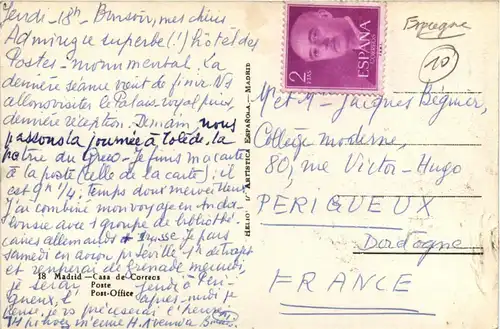 Jeudi - 18h - Bonsoir, mes chéris
Admirez ce superbe (!) hôtel des
Postes - monumental. La
dernière séance vient de finir. Ns
allons visiter le Palais royal puis,
dernière réception. Demain, nous
passons la journée à Tolède, la
patrie du Greco - Je finis ma carte
à la poste (celle de la carte); il
est 9h 1/4; Temps doux merveilleux
J'ai combiné mon voyage en Anda-
lousie avec 1 groupe de bibliothé-
caires allemands + suisse. Je pars
samedi en avion pr Séville 1h de trajet
et rentrerai de Grenade mercredi,
je serai jeudi à Péri-
gueux, l'après-midi, je
pense, je vs préciserai l'heure.
18 Madrid — Casa de Correos
Poste
Post-Office
HELIOTIPIA ARTISTICA ESPAÑOLA - MADRID
2
PTAS
CORREOS
ESPAÑA
Espagne
10
M et Me Jacques Béguier,
Collège moderne,
80, rue Victor-Hugo
PERIGUEUX
Dordogne
FRANCE